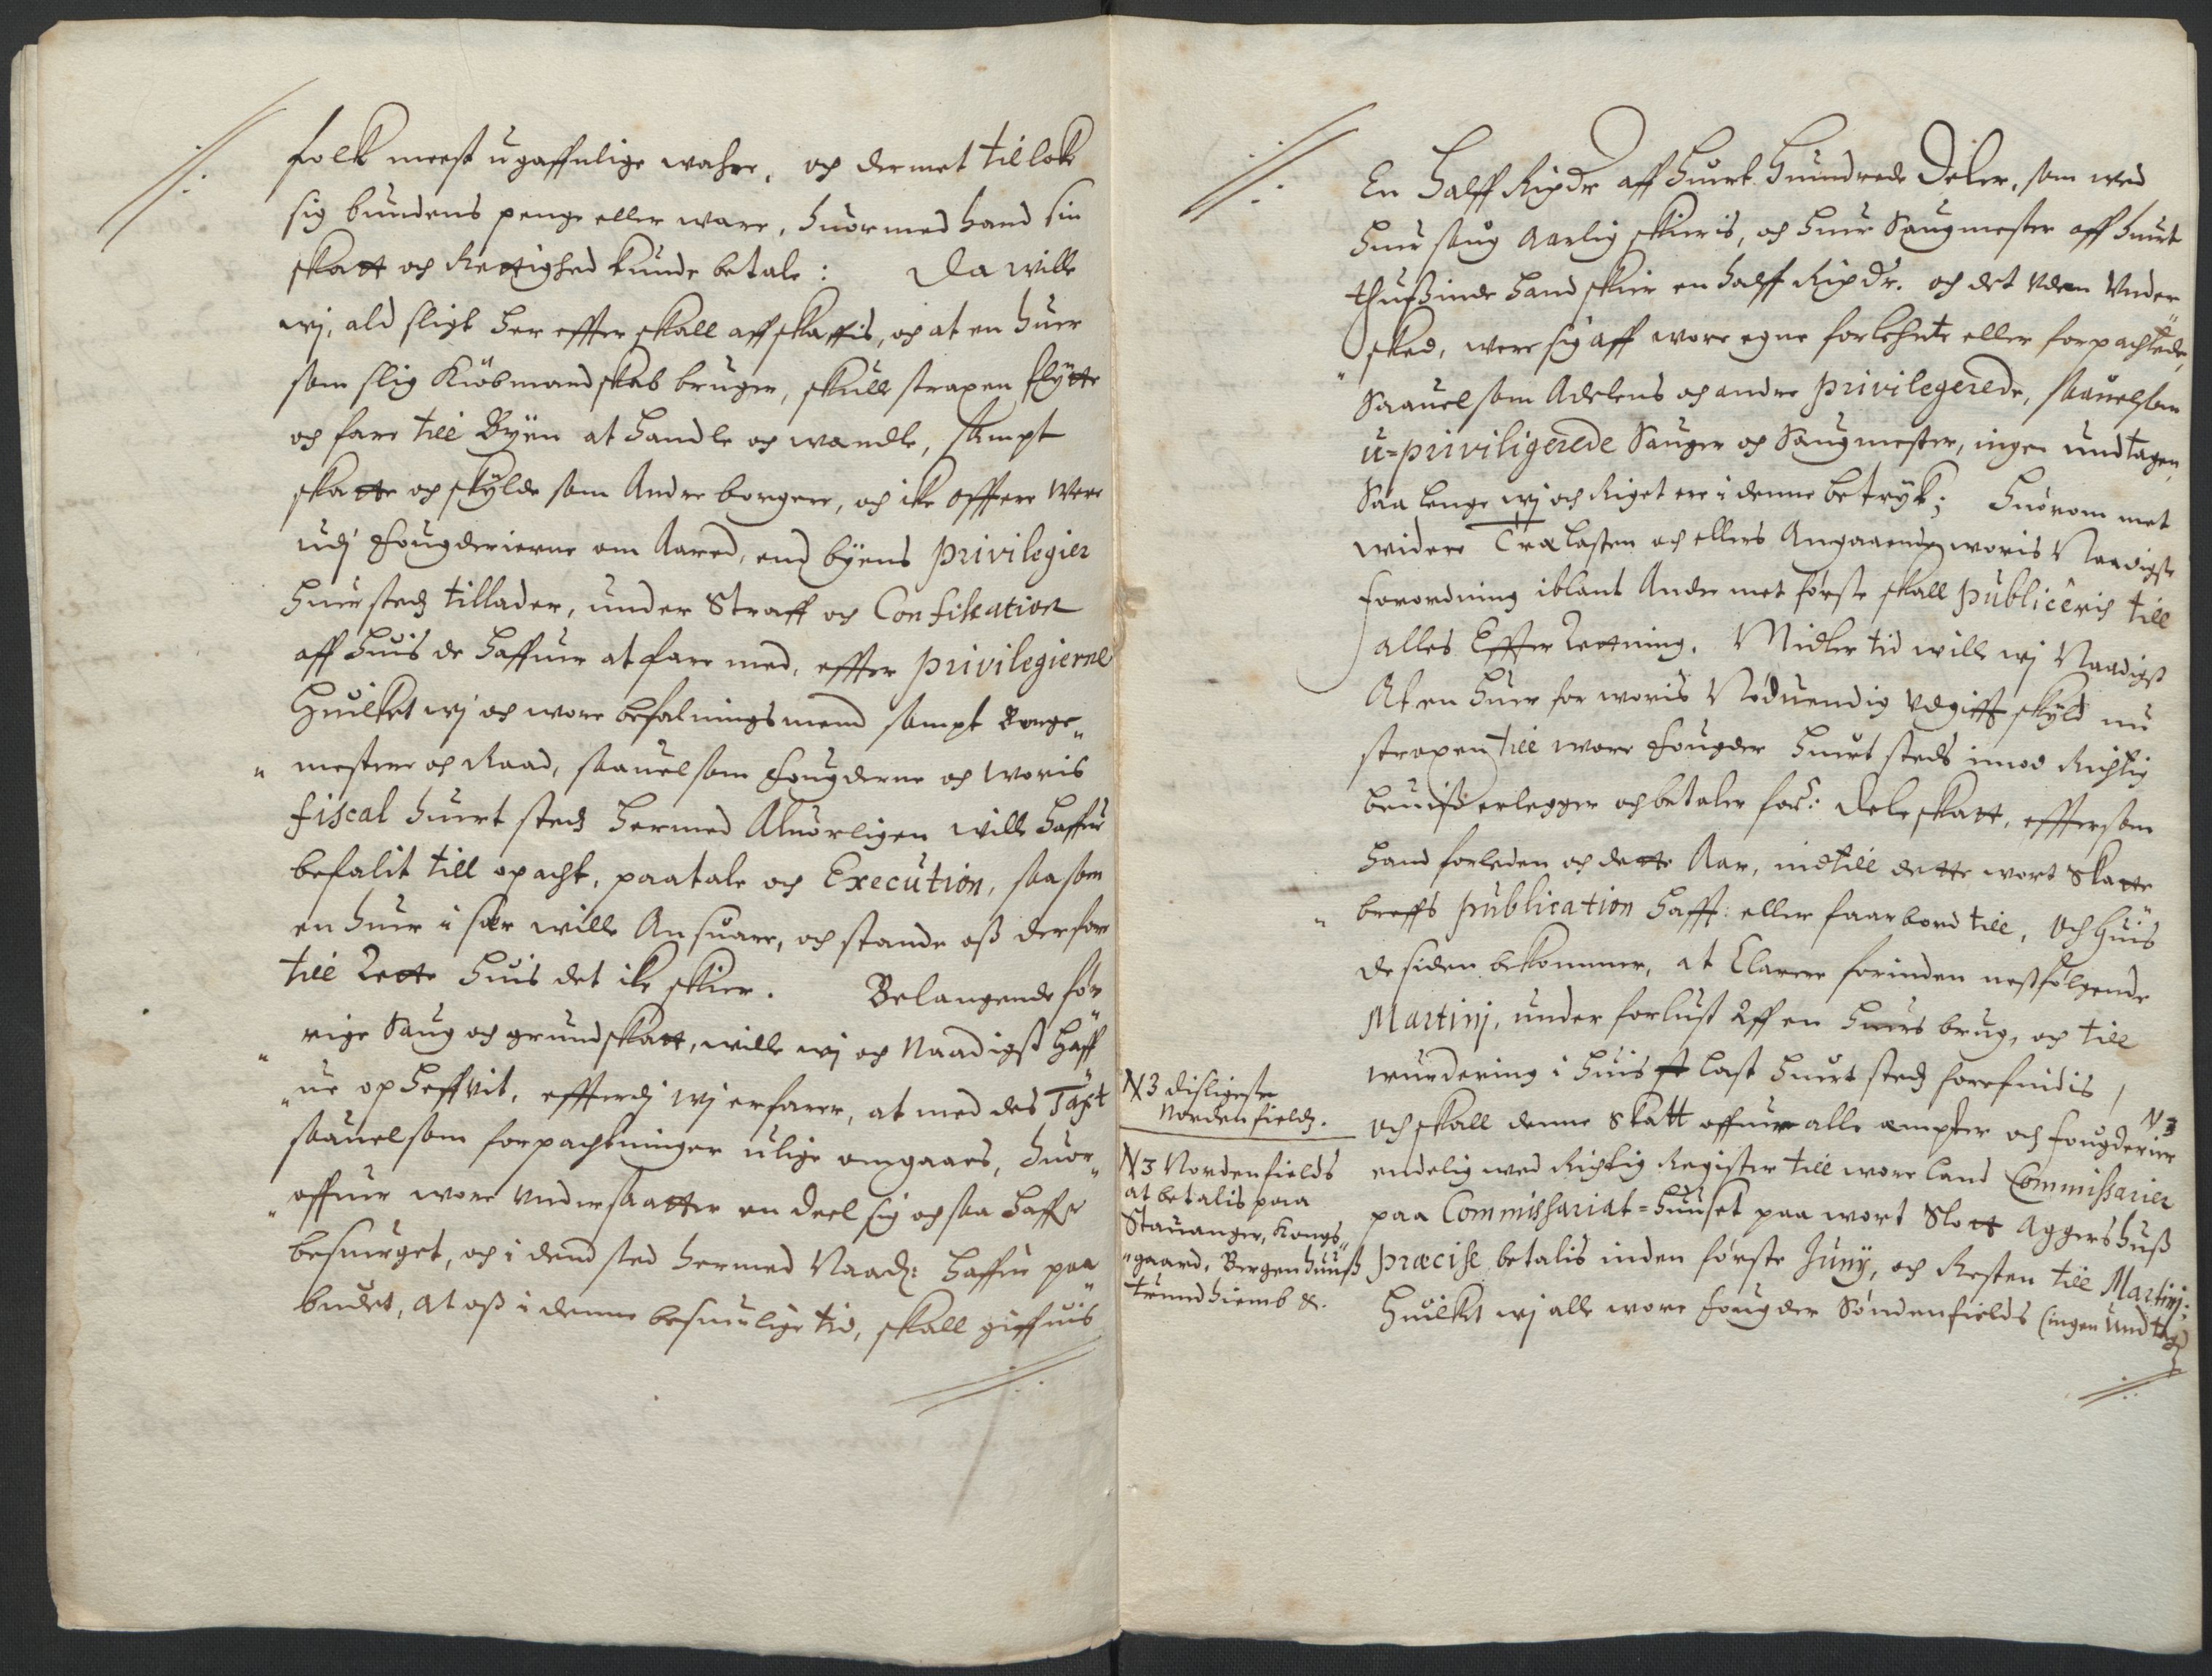 folck meest ugaffnlige wahre, och dermet tilloke
sig bundens penge eller ware, huormed hand sin
skatt och Rettighed kunde betale: Da wille
wj, ald sligt her effter skall affskaffis, och at en huer
som slig Kiöbmandskab bruger, skulle straxen flÿtte
och fare till Bÿen at handle och wandle, sampt
skatte och skÿlde som Andre borgere, och ike offtere were
udj Fougderierne om Aared, end bÿens privilegier
huer stedz tillader, under Straff och Confiskation
aff huis de haffuer at fare med, effter privilegierne
Huilket wj och wore befalningsmend sampt Borge„
„mestere och Raad, saauelsom Fougderne och woris
fiscal huert stedz hermed Aluorligen wille haffue
befalit till opacht, paatale och Execution, saasom
en huer i sær wille Ansuare, och stande oß derfore
till Rette huis det ike skier. Belangende för„
„rige Saug och grundskatt, wille wj och Naadigst haff„
„ue opheffvit, effterdj wj erfarer, at med des Taxt
saauelsom forpachtninger ulige omgaaes, huor„
„offuer wore undersaatter en deel sig och saa haffr
besuerget, och i dend sted hermed Naadz: haffue paa„
budet, at oß i denne besuerlige tid, skall giffuis
En halff Rixdr aff huert hundrede Deler, som wed
huer saug Aarlig skieris, och huer Saugmester aff huert
thusinde hand skier en halff Rixdr. och det uden under„
„sked, were sig aff wore egne forlehnte eller forpachtede,
Saauelsom Adelens och andre privilegerede, saauelsom
u=priviligerede Sauger och Saugmester, ingen undtagen,
Saa lenge wj och Riget ere i denne betrÿk; huorom met
widere Trælasten och ellers Angaaende woris Naadigste
forordning iblant Andre met förste skall publicêris till
alles Effter Retning. Midler tid wille wj Naadigst
At en huer for woris Nöduendig udgifft skÿld nu
straxen till wore Fougder huert steds imod Richtig
beuiß erlegger och betaler for:ne: Deleskatt, efftersom
hand forleden och dette Aar, indtill dette wort Skatte„
„breffs publication hafft: eller faar bord till, och huis
de siden bekommer, at Clarere forinden nestfölgende
Martinj, under forlust Aff en huers brug, och till
wurdering i huis last huert stedz forefindis /
och skall denne Skatt offuer alle ampter och Fougderier N3
endelig med Richtig Register till wore land Commissarier
paa Commissariat=huuset paa wort Slott Aggershuß
præcise betalis inden förste Junij, och Resten till Martinj:
Huilket wj alle wore Fougder Söndenfields (ingen undtagd
N3 disligeste
Nordenfieldz.
N3 Nordenfields
at betalis paa
Stauanger, Kongs„
„gaard, Bergenhuuß
Trundhiemb &.